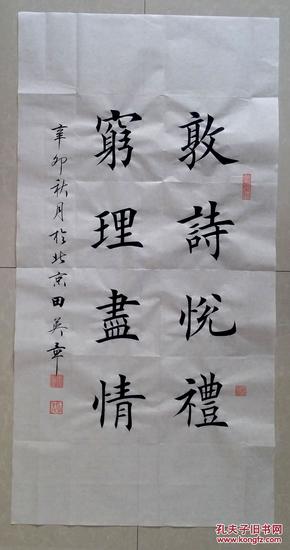 敦詩悅禮
窮理盡情
辛卯秋月於北京田英章
孔夫子旧书网
kongfz.com